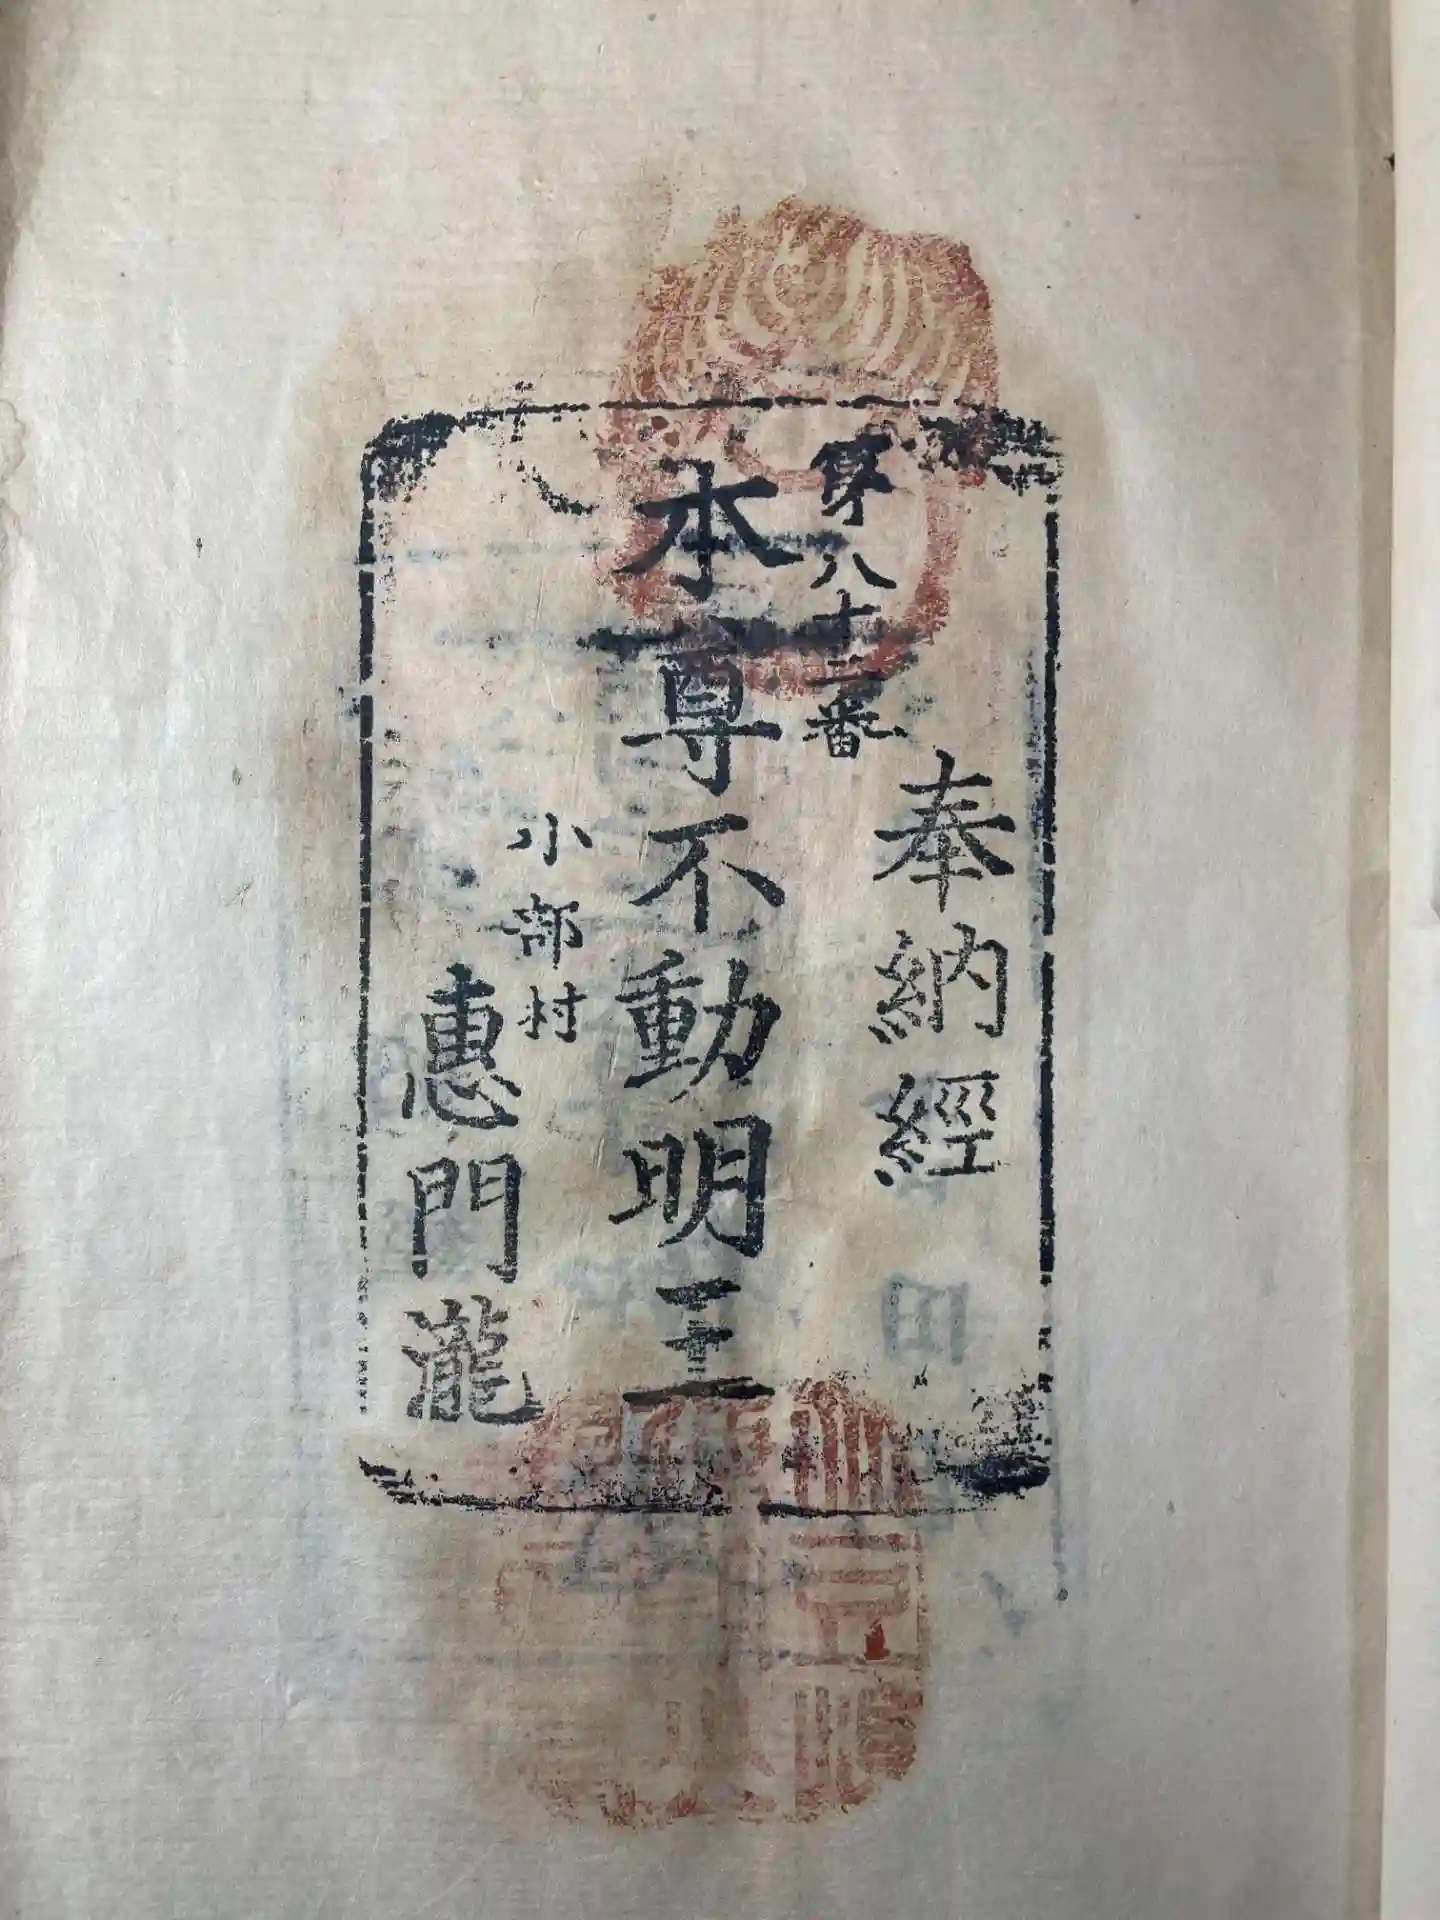 奉納經
第八十二番
本尊不動明王
小部村
惠門瀧